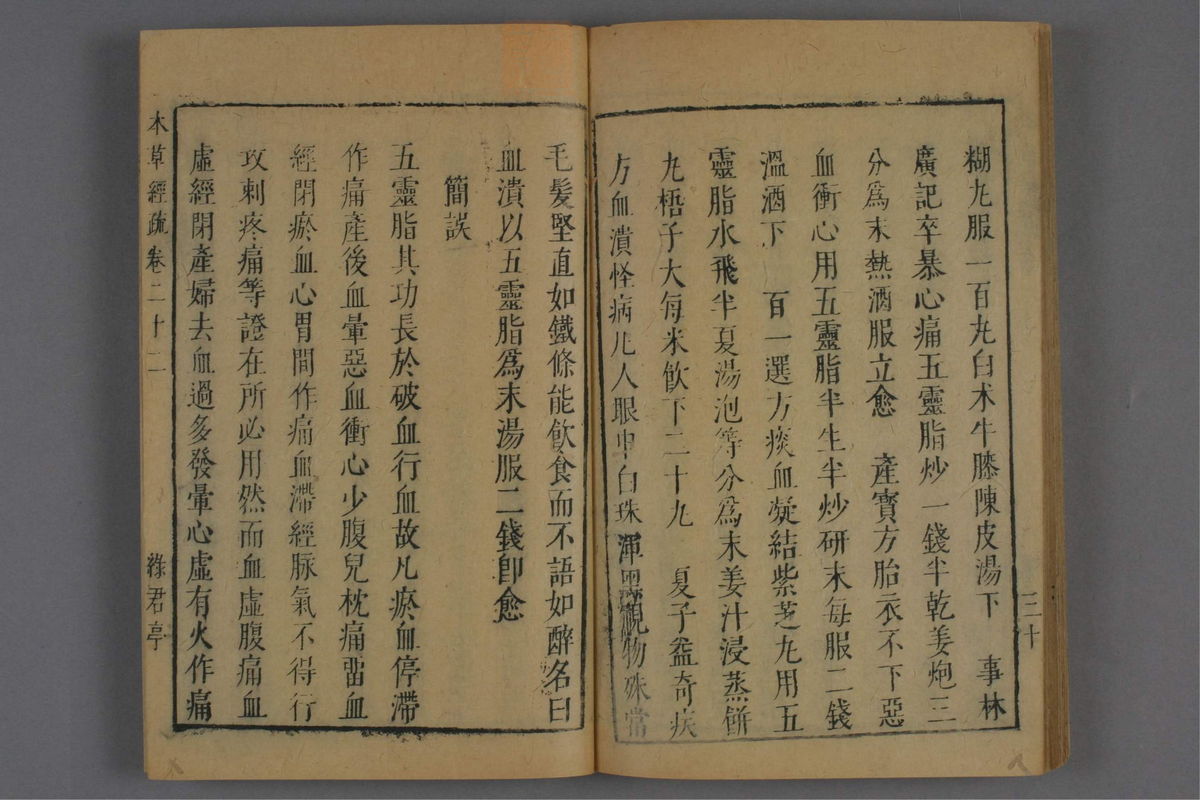 三十
糊丸服一百丸白术牛膝陳皮湯下　事林
廣記卒暴心痛五靈脂炒一錢半乾姜炮三
分爲末熱酒服立愈　產寶方胎衣不下惡
血衝心用五靈脂半生半炒研末每服二錢
溫酒下　百一選方痰血凝結紫芝丸用五
靈脂水飛半夏湯泡等分爲末姜汁浸蒸餅
丸梧子大每米飲下二十丸　夏子益奇疾
方血潰怪病凡人眼中白珠渾黑視物殊常
毛髮堅直如鐵條能飲食而不語如醉名曰
血潰以五靈脂爲末湯服二錢卽愈
簡誤
五靈脂其功長於破血行血故凡瘀血停滯
作痛產後血暈惡血衝心少腹兒枕痛畱血
經閉瘀血心胃間作痛血滯經脉氣不得行
攻刺疼痛等證在所必用然而血虛腹痛血
虛經閉產婦去血過多發暈心虛有火作痛
本草經疏卷二十二　綠君亭